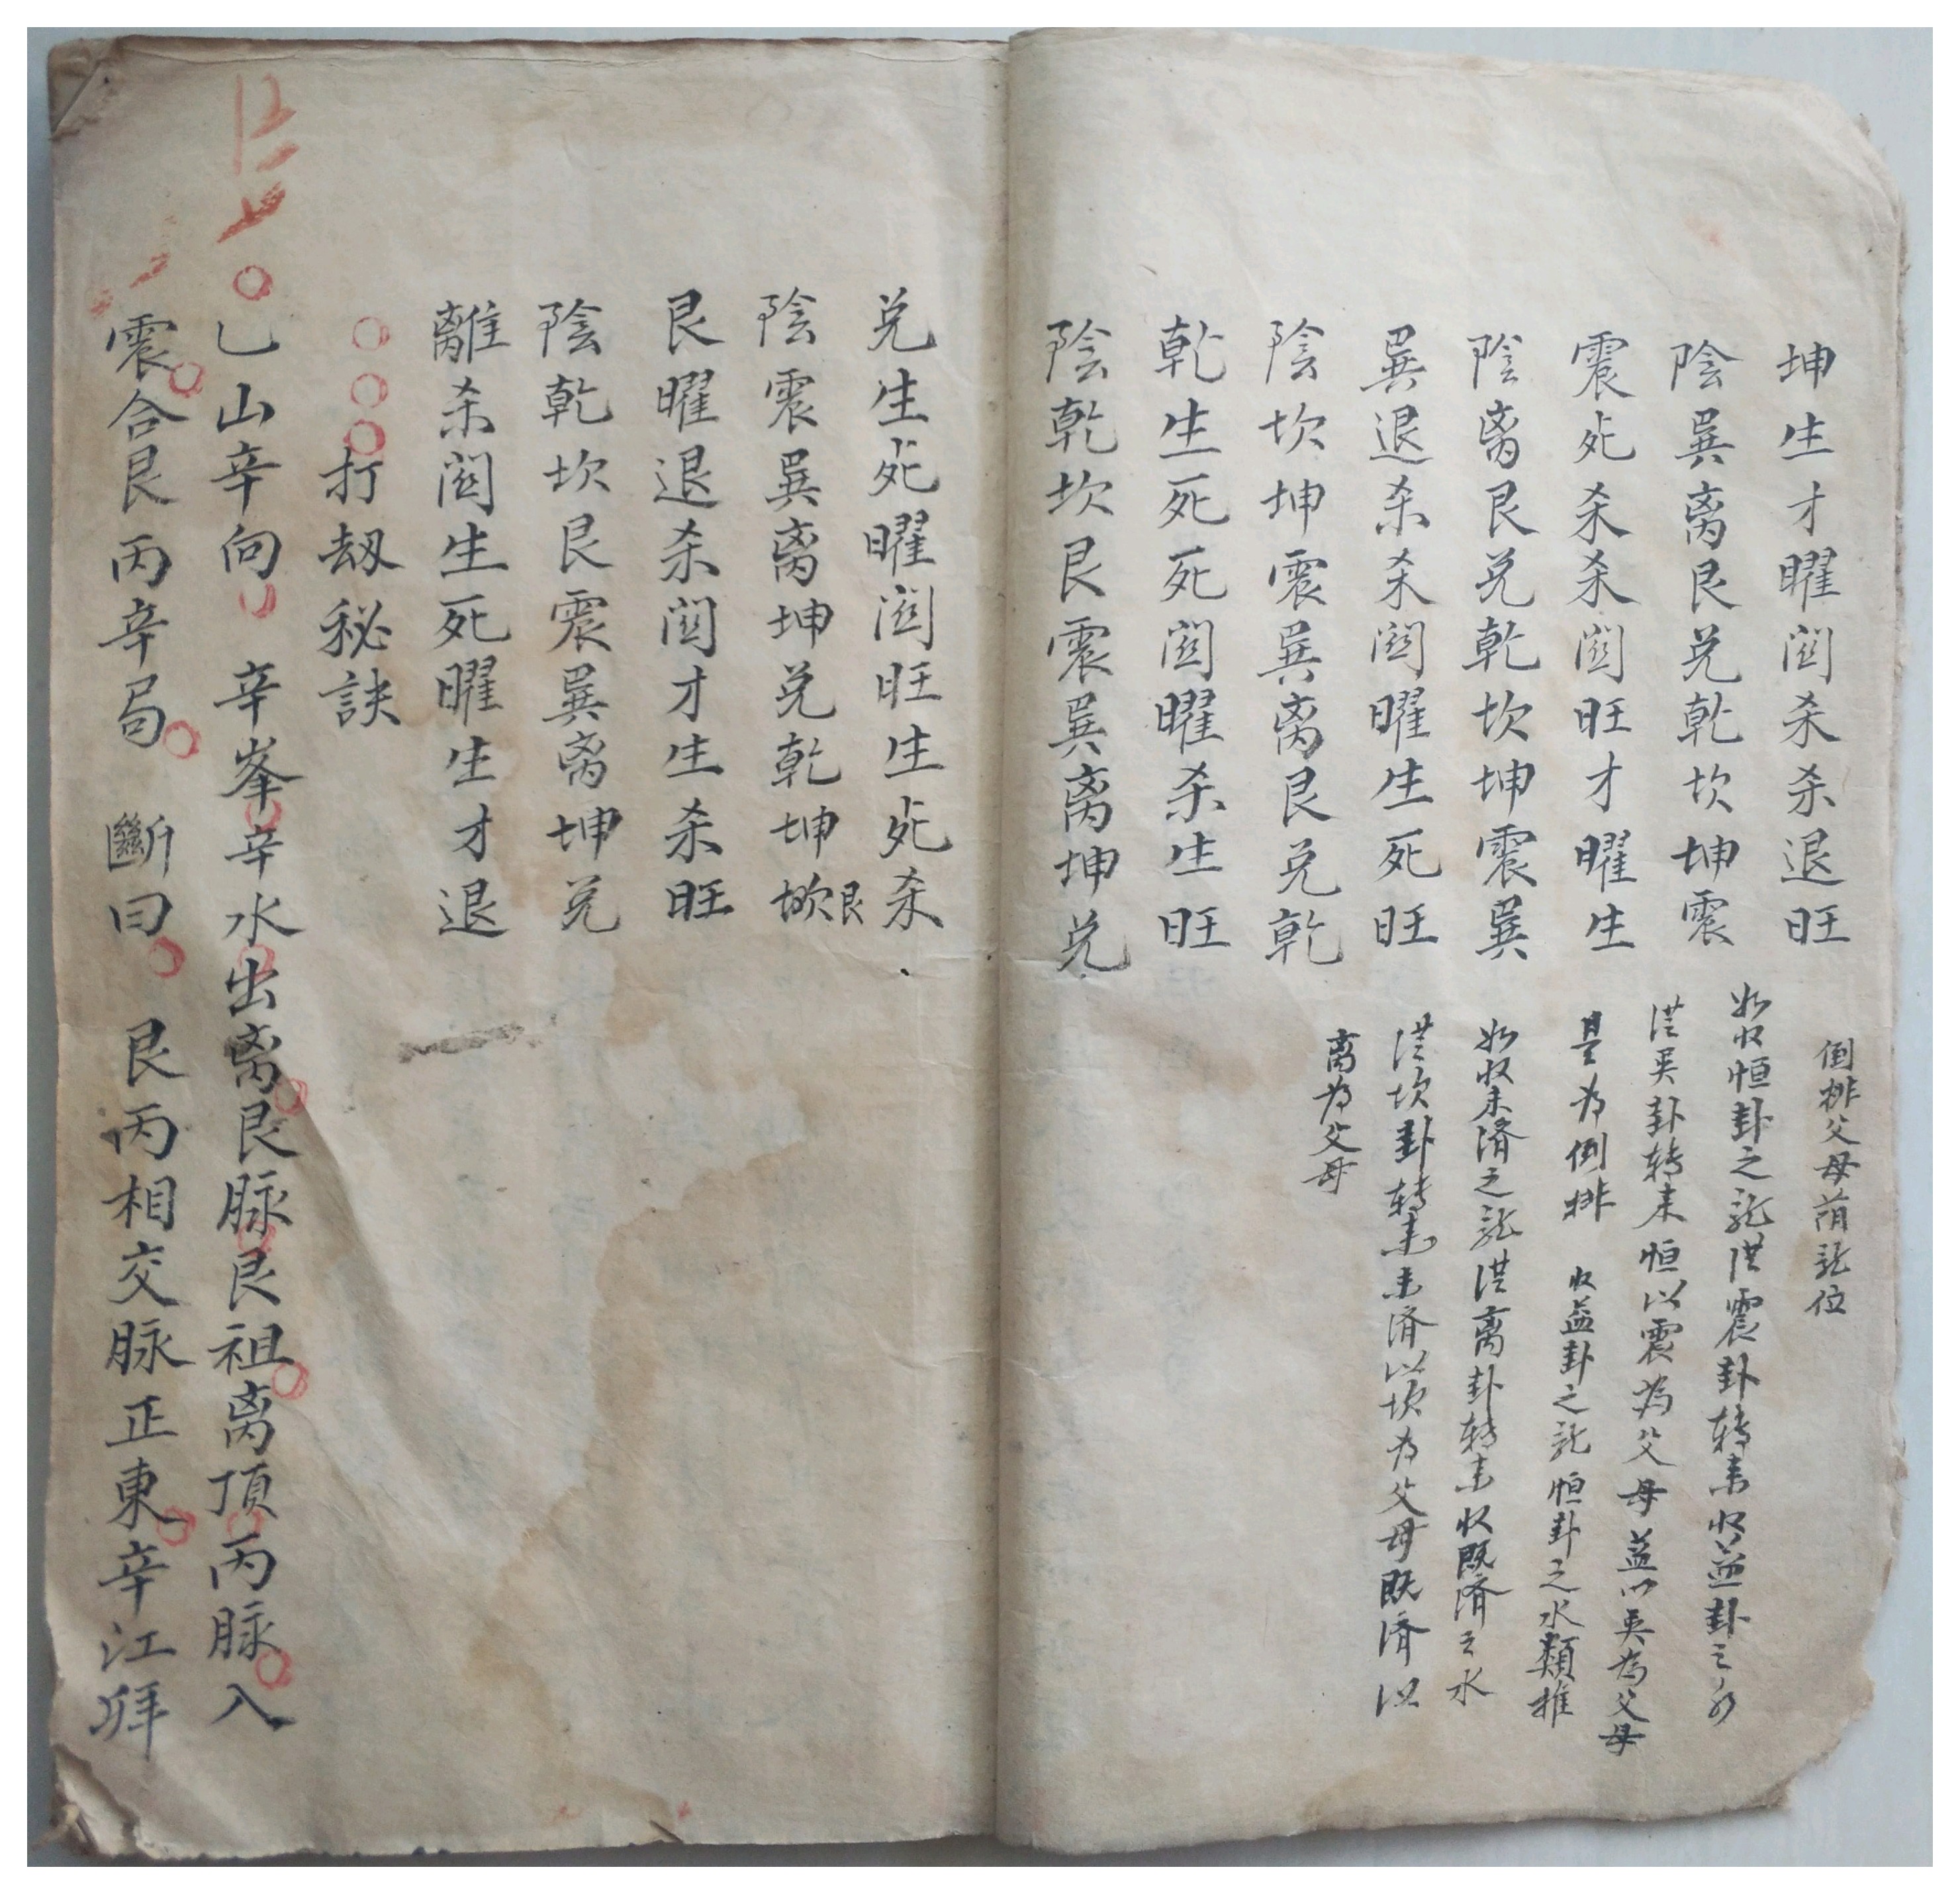 坤生才曜関杀杀退旺
陰巽离艮兑乾坎坤震
震死杀杀関旺才曜生
陰离艮兑乾坎坤震巽
巽退杀杀関曜生死旺
陰坎坤震巽离艮兑乾
乾生死死関曜杀生旺
陰乾坎艮震巽离坤兑
倒排父母荫龍位
如收恒卦之龍從震卦转来收益卦之水
從巽卦转来恒以震為父母益以巽為父母
是为倒排 收益卦之龍恒卦之水類推
如收未濟之龍從离卦转来收既濟之水
從坎卦转来未濟以坎为父母既濟以
离为父母
兑生死曜関旺生死杀
陰震巽离坤兑乾坤坎艮
艮曜退杀関才生杀旺
陰乾坎艮震巽离坤兑
離杀関生死曜生才退
打刼秘訣
乙山辛向 辛峯辛水出离艮脉艮祖离頂丙脉入
震合艮丙辛局 斷曰 艮丙相交脉正東辛江拜